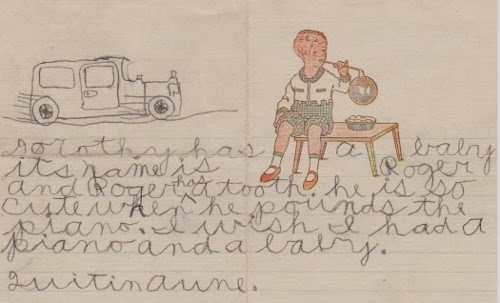 Dorothy has a baby
its name is Roger
and Roger has tooth. he is so
cute when he pounds the
piano. I wish I had a
piano and a baby.